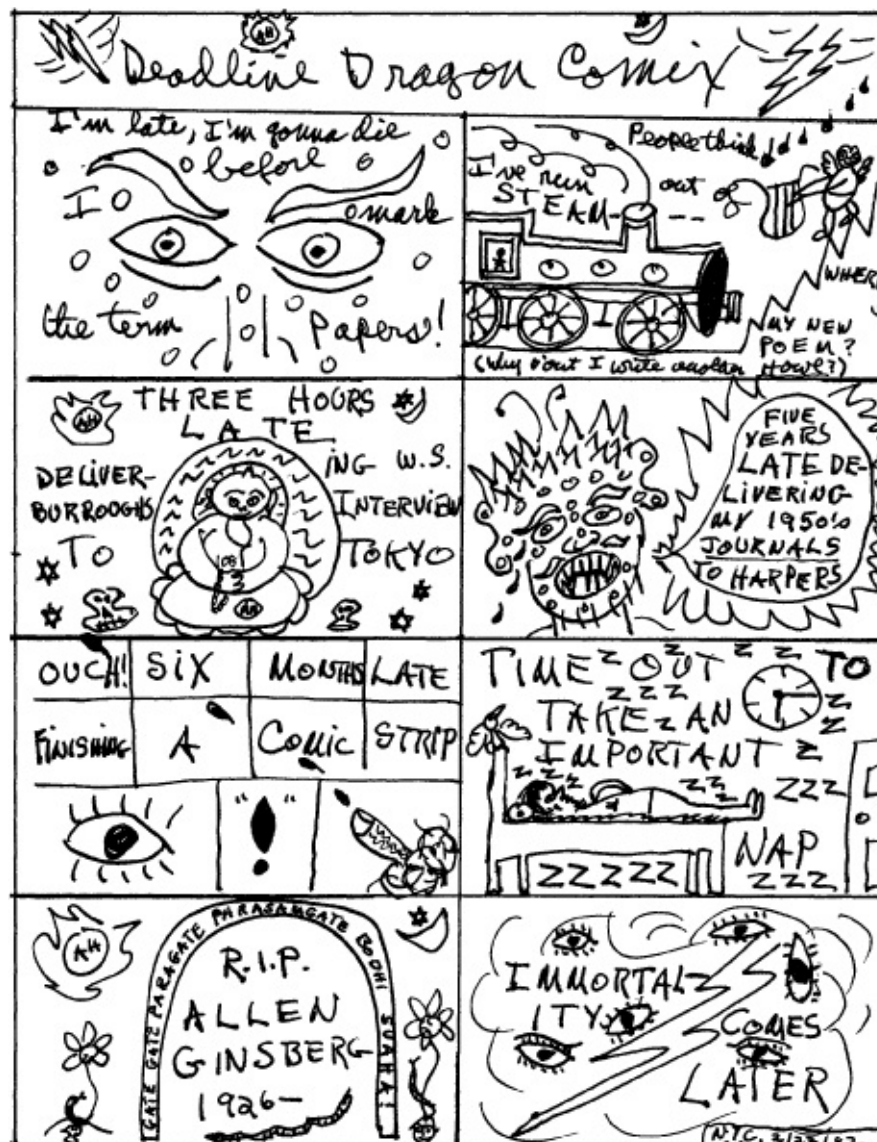 AH
Deadline Dragon Comix
I'm late, I'm gonna die
before
I
mark
the term
Papers!
People think
I've run out
STEAM- - -
WHER
MY NEW
POEM?
(Why don't I write another Howl?)
AH
THREE HOURS
LATE
DELIVER- ING W.S.
BURROUGHS INTERVIEW
TO TOKYO
AH
FIVE
YEARS
LATE DE-
LIVERING
MY 1950's
JOURNALS
TO HARPERS
OUCH! SIX MONTHS LATE
FINISHING A COMIC STRIP
" ! "
TIME OUT TO
Z Z Z Z
TAKE AN
IMPORTANT
NAP
ZZZ
ZZZZZ
AH
GATE GATE PARAGATE PARASAMGATE BODHI SVAHA!
R.I.P.
ALLEN
GINSBERG
1926-
IMMORTAL-
ITY
COMES
LATER
N.Y.C.